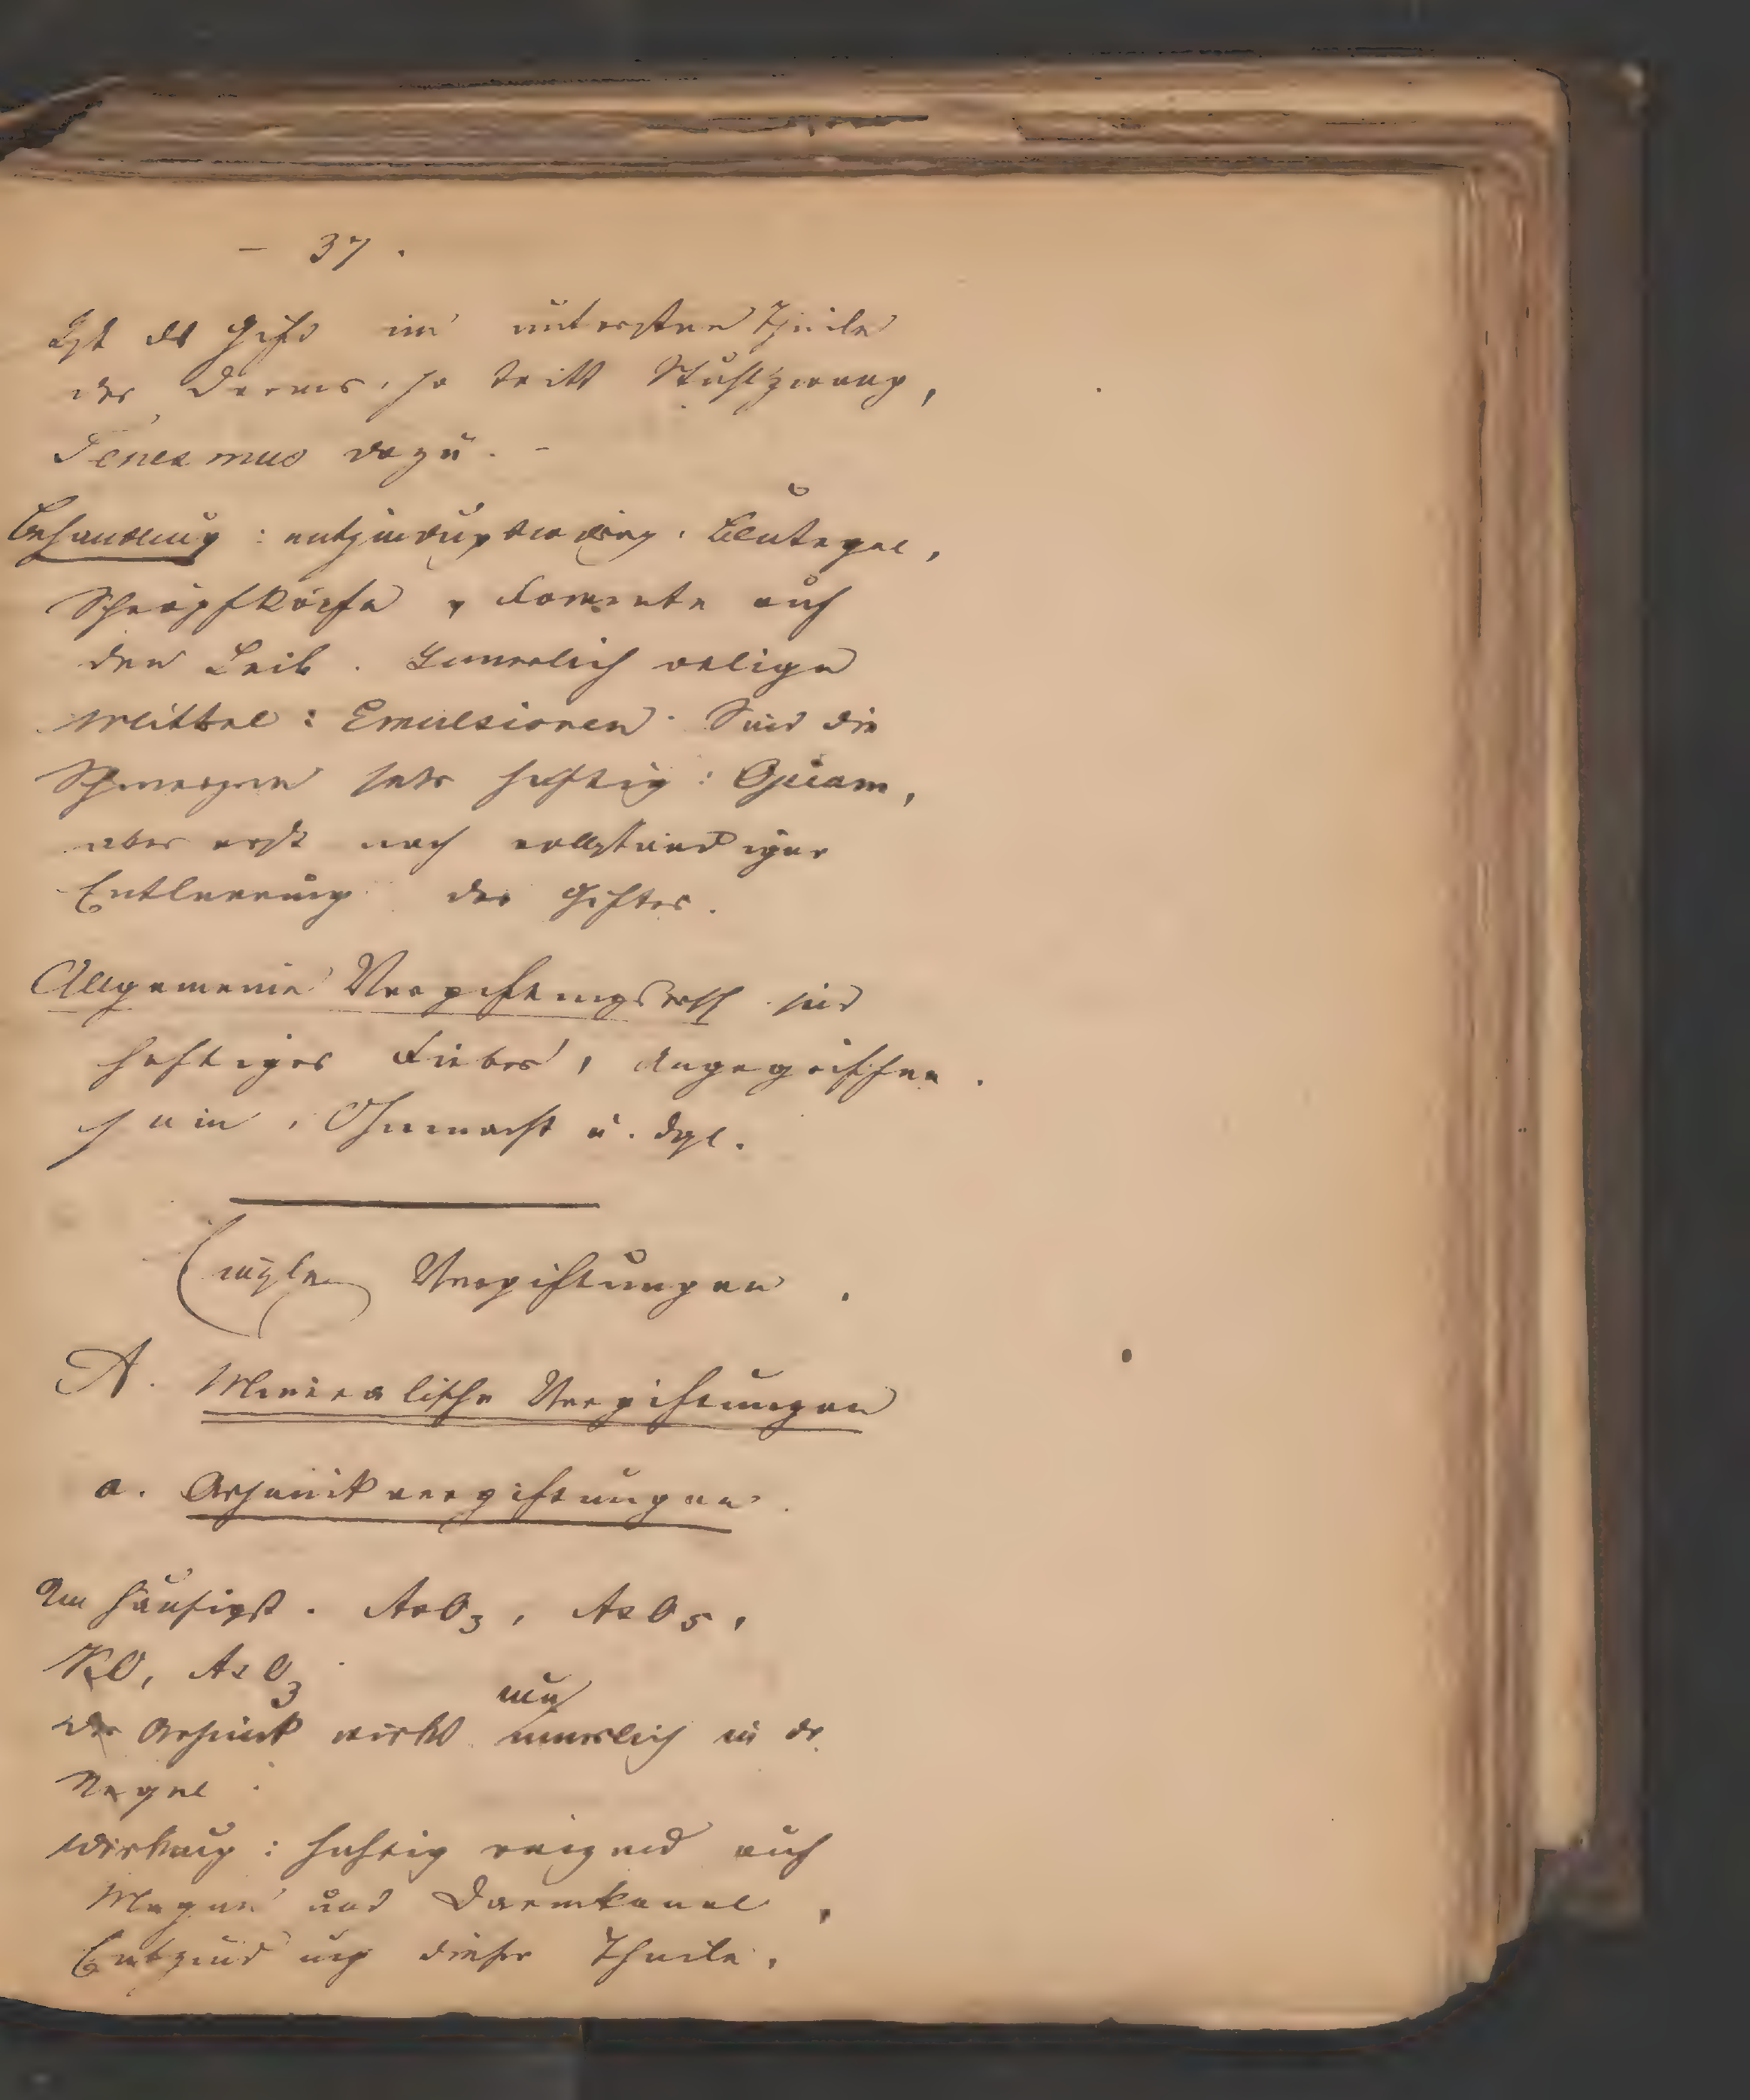 – 37.
Ist das Gift im untersten Theile
des Darms, so tritt Stuhlzwang,
Tenesmus dazu. –
Behandlung: entzündungswidrig. Blutegel,
Schröpfköpfe, Fomente auf
den Leib. Innerlich oelige
Mittel: Emulsionen. Sind die
Schmerzen sehr heftig: Opium,
aber erst nach vollständiger
Entleerung des Giftes.
Allgemeine Vergiftungs sind
heftiges Fieber, Angegriffen
sein, Ohnmacht u. dgl.
Einzelne Vergiftungen.
A. Mineralische Vergiftungen
a. Arsenikvergiftungen.
Am häufigst. AsO3, AsO5,
KO, AsO3.
Der Arsenik wirkt innerlich in der
Regel.
Wirkung: heftig reizend auf
Magen und Darmkanal,
Entzündung dieser Theile,